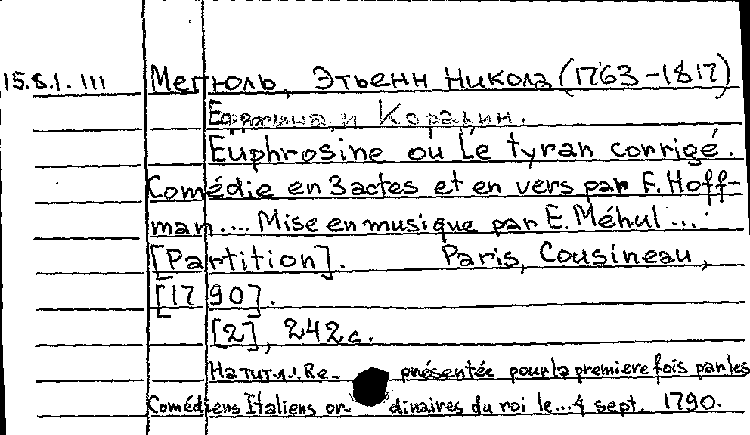 15.8.1.111 Мегюль, Этьенн Никола (1763-1817)
Ефросина и Корадин.
Euphrosine ou Le tyran corrigé.
Comédie en 3 actes et en vers par F. Hoff-
man .... Mise en musique par E. Méhul ...
[Partition]. Paris, Cousineau,
[1790].
[2], 242 с.
На тит.л.: Re- présentée pour la premiere fois par les
Comédiens Italiens or- dinaires du roi le... 4 sept. 1790.